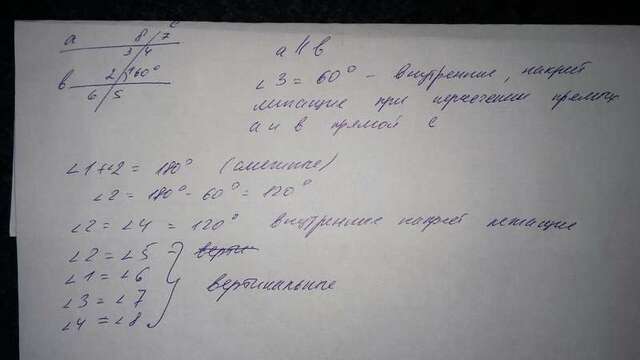 с
а 8 7
3 4
в 2 1 60°
6 5
а || в
∠3 = 60° - внутренние, накрест
лежащие при пересечении прямых
а и в прямой с
∠1+∠2 = 180° (смежные)
∠2 = 180° - 60° = 120°
∠2 = ∠4 = 120° внутренние накрест лежащие
∠2 = ∠5 - верти
∠1 = ∠6
∠3 = ∠7 вертикальные
∠4 = ∠8